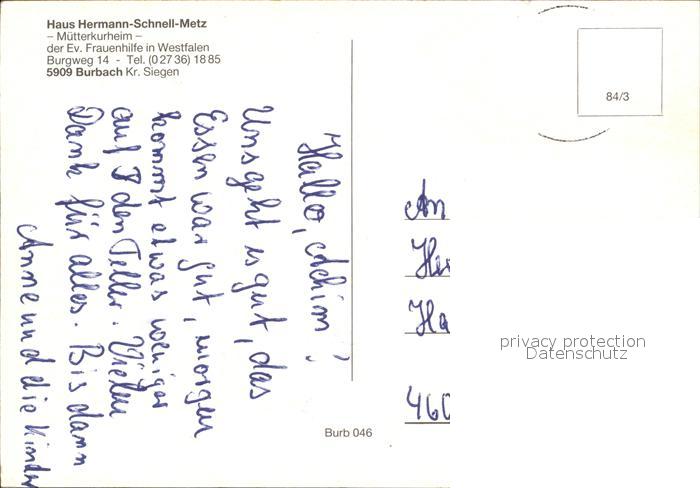 Haus Hermann-Schnell-Metz
– Mütterkurheim –
der Ev. Frauenhilfe in Westfalen
Burgweg 14 - Tel. (0 27 36) 18 85
5909 Burbach Kr. Siegen
84/3
Hallo, Achim!
Uns geht es gut, das
Essen war gut, morgen
kommt etwas weniger
auf den Teller. Vielen
Dank für alles. Bis dann
Anne und die Kinder
An
Her
Ha
460
privacy protection
Datenschutz
Burb 046